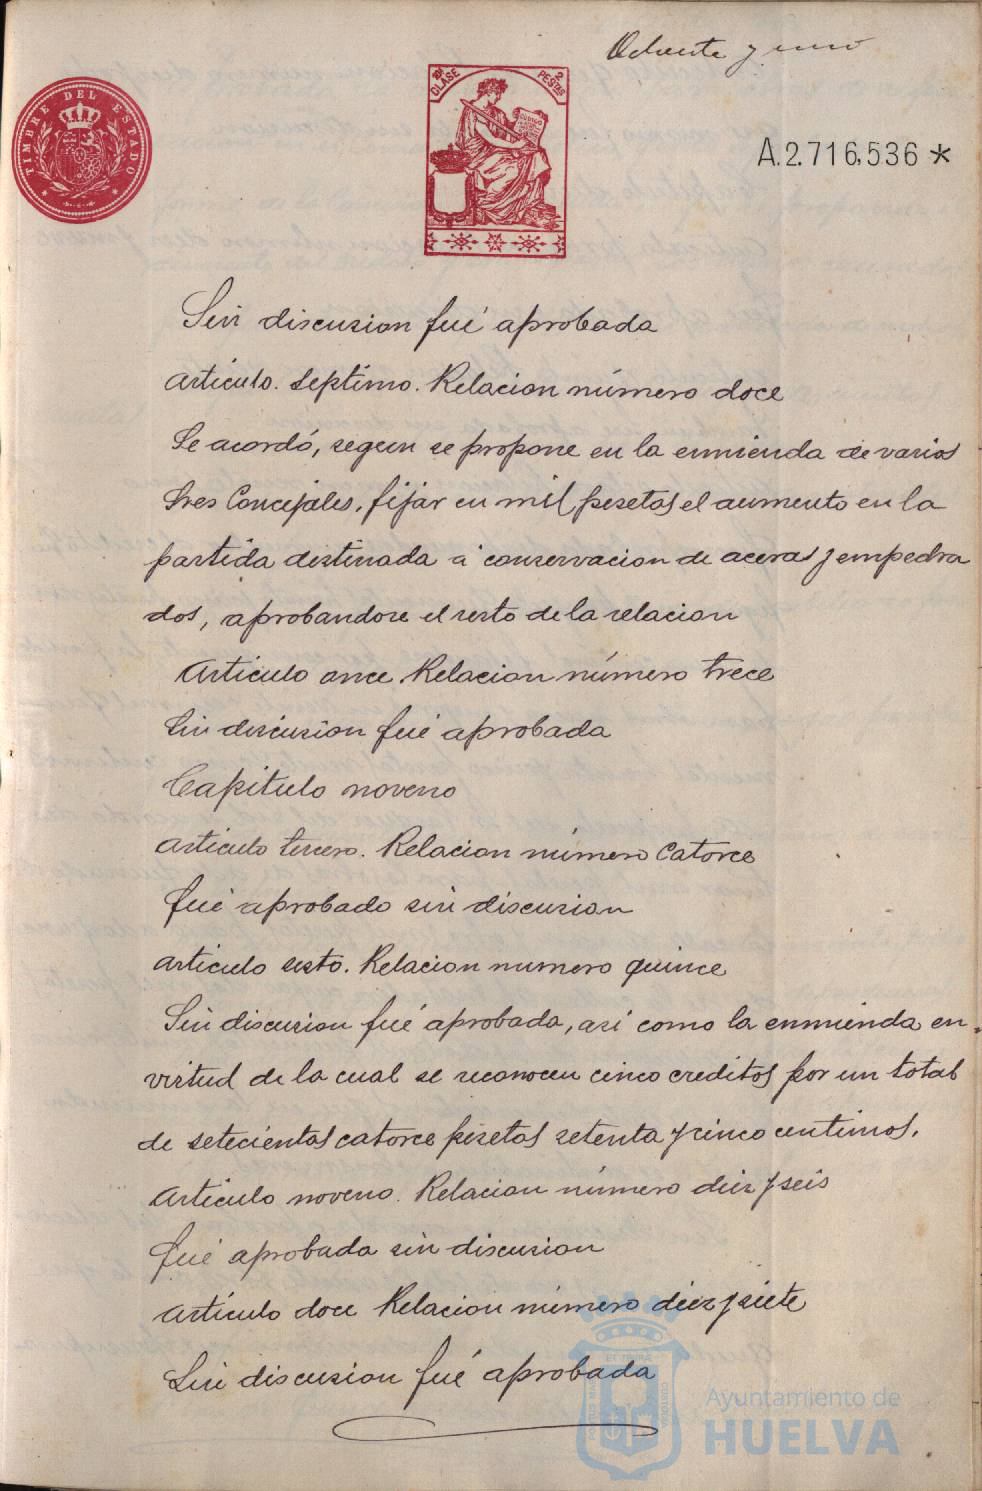 Ochenta y uno
TIMBRE DEL ESTADO
10ª CLASE
2 PESTAS
A.2.716.536 *
Sin discusion fué aprobada
Articulo. Septimo. Relacion número doce
Se acordó, segun se propone en la enmienda de varios
Sres Concejales, fijar en mil pesetas el aumento en la
partida destinada á conservacion de aceras y empedra
dos, aprobandose el resto de la relacion
Articulo once. Relacion número trece
Sin discusion fué aprobada
Capitulo noveno
Articulo tercero. Relacion número Catorce
fué aprobado sin discusion
Articulo sesto. Relacion numero quince
Sin discusion fué aprobada, asi como la enmienda en
virtud de la cual se reconocen cinco creditos por un total
de setecientas catorce pesetas setenta y cinco centimos.
Articulo noveno. Relacion número diez y seis
fué aprobada sin discusion
Articulo doce Relacion número diez y siete
Sin discusion fué aprobada
Ayuntamiento de
HUELVA